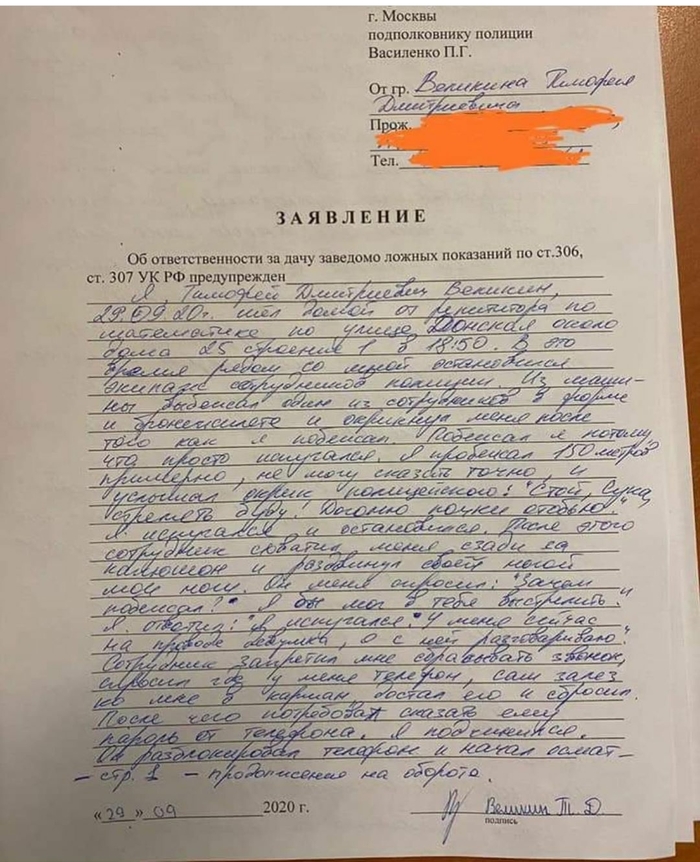 г. Москвы
подполковнику полиции
Василенко П.Г.
От гр. Великина Тимофея
Дмитриевича
Прож.
Тел.
ЗАЯВЛЕНИЕ
Об ответственности за дачу заведомо ложных показаний по ст.306,
ст. 307 УК РФ предупрежден
Я, Тимофей Дмитриевич Великин,
29.09.20г. шёл домой от репетитора по
математике по улице Донская около
дома 25 строение 1 в 18:50. В это
время рядом со мной остановился
экипаж сотрудников полиции. Из маши-
ны выбежал один из сотрудников в форме
и бронежилете и окрикнул меня после
того как я побежал. Побежал я потому,
что просто испугался. Я пробежал 150 метров
примерно, не могу сказать точно, и
услышал окрик полицейского: "Стой, Сука,
стрелять буду! Догоню почки отобью."
Я испугался и остановился. После этого
сотрудник схватил меня сзади за
капюшон и раздвинул своей ногой
мои ноги. Он меня спросил: "Зачем
побежал?" Я бы мог в тебя выстрелить."
Я ответил: "Я испугался. У меня сейчас
на проводе девушка, я с ней разговариваю".
Сотрудник запретил мне сбрасывать звонок,
спросил где у меня телефон, сам залез
ко мне в карман, достал его и сбросил.
После чего потребовал сказать ему
пароль от телефона. Я подчинился.
Он разблокировал телефон и начал осмат-
- стр. 1 - продолжение на обороте.
«29» 09 2020 г. Великин Т. Д.
подпись